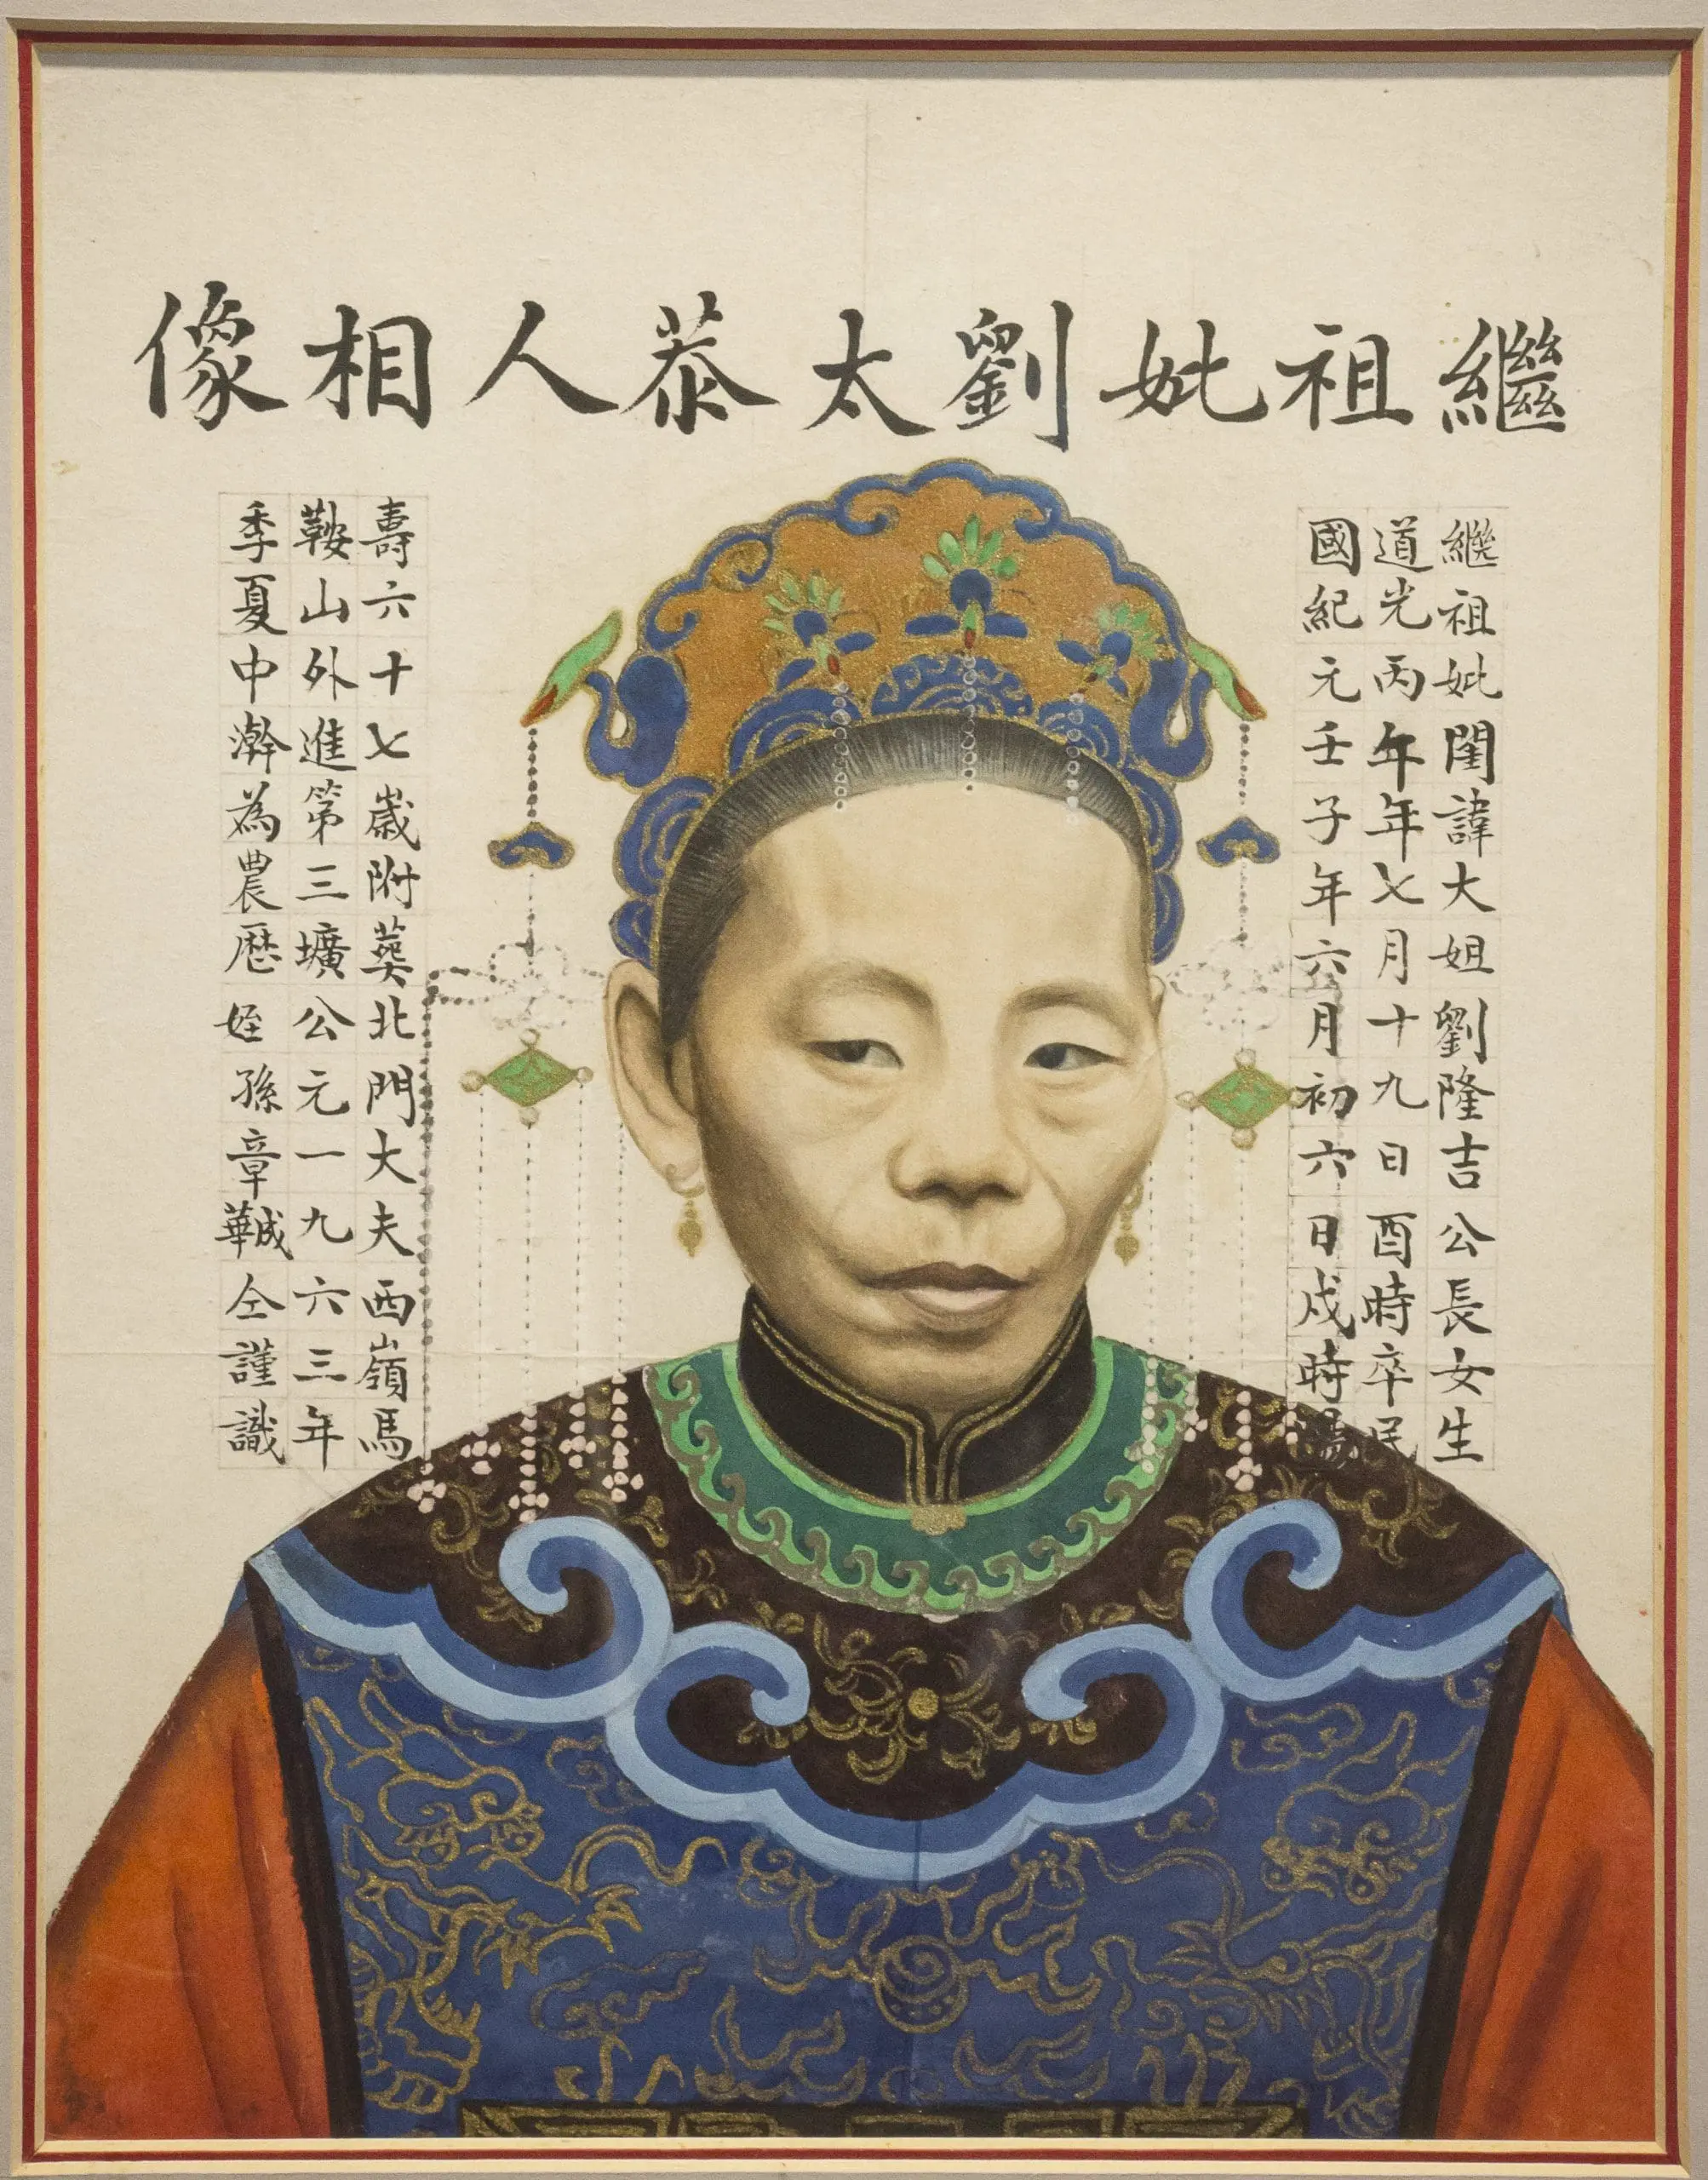 繼祖妣劉太恭人相像
繼祖妣閨諱大姐劉隆吉公長女生
道光丙年年七月十九日酉時卒民
國紀元壬子年六月初六日戌時陽
壽六十七嵗附葬北門大夫西嶺馬
鞍山外進第三壙公元一九六三年
季夏中澣為農厯姪孫章華成仝謹識